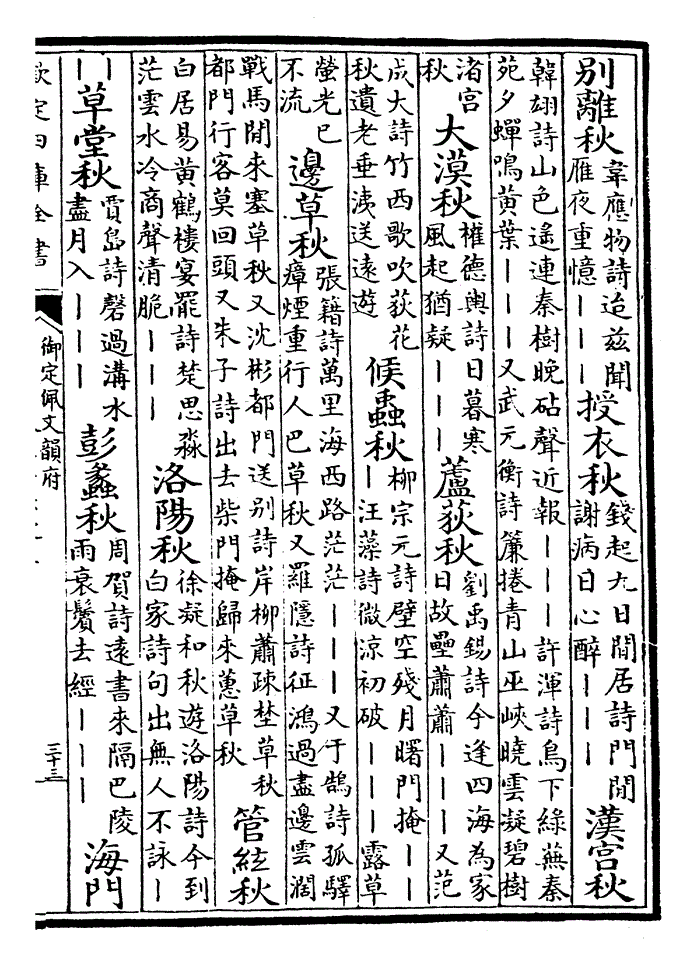 別離秋
韋應物詩迨茲聞
雁夜重憶丨丨丨
授衣秋
錢起九日閒居詩門閒
謝病日心醉丨丨丨
漢宮秋
韓翃詩山色遙連秦樹晚砧聲近報丨丨丨許渾詩鳥下綠蕪秦
苑夕蟬鳴黃葉丨丨丨又武元衡詩簾捲青山巫峽曉雲凝碧樹
渚宮
秋
大漠秋
權德輿詩日暮寒
風起猶疑丨丨丨
蘆荻秋
劉禹錫詩今逢四海為家
日故壘蕭蕭丨丨丨又范
成大詩竹西歌吹荻花
秋遺老垂洟送遠遊
候蟲秋
柳宗元詩壁空殘月曙門掩丨丨
丨汪藻詩微涼初破丨丨丨露草
螢光已
不流
邊草秋
張籍詩萬里海西路茫茫丨丨丨又于鵠詩孤驛
瘴煙重行人巴草秋又羅隱詩征鴻過盡邊雲濶
戰馬閒來塞草秋又沈彬都門送别詩岸柳蕭疎埜草秋
都門行客莫回頭又朱子詩出去柴門掩歸來蕙草秋
管絃秋
白居易黃鶴樓宴罷詩楚思淼
茫雲水冷商聲清脆丨丨丨
洛陽秋
徐凝和秋遊洛陽詩今到
白家詩句出無人不詠丨
丨
丨
草堂秋
賈島詩磬過溝水
盡月入丨丨丨
彭蠡秋
周賀詩遠書來隔巴陵
雨衰鬢去經丨丨丨
海門
欽定四庫全書
御定佩文韻府
三十三